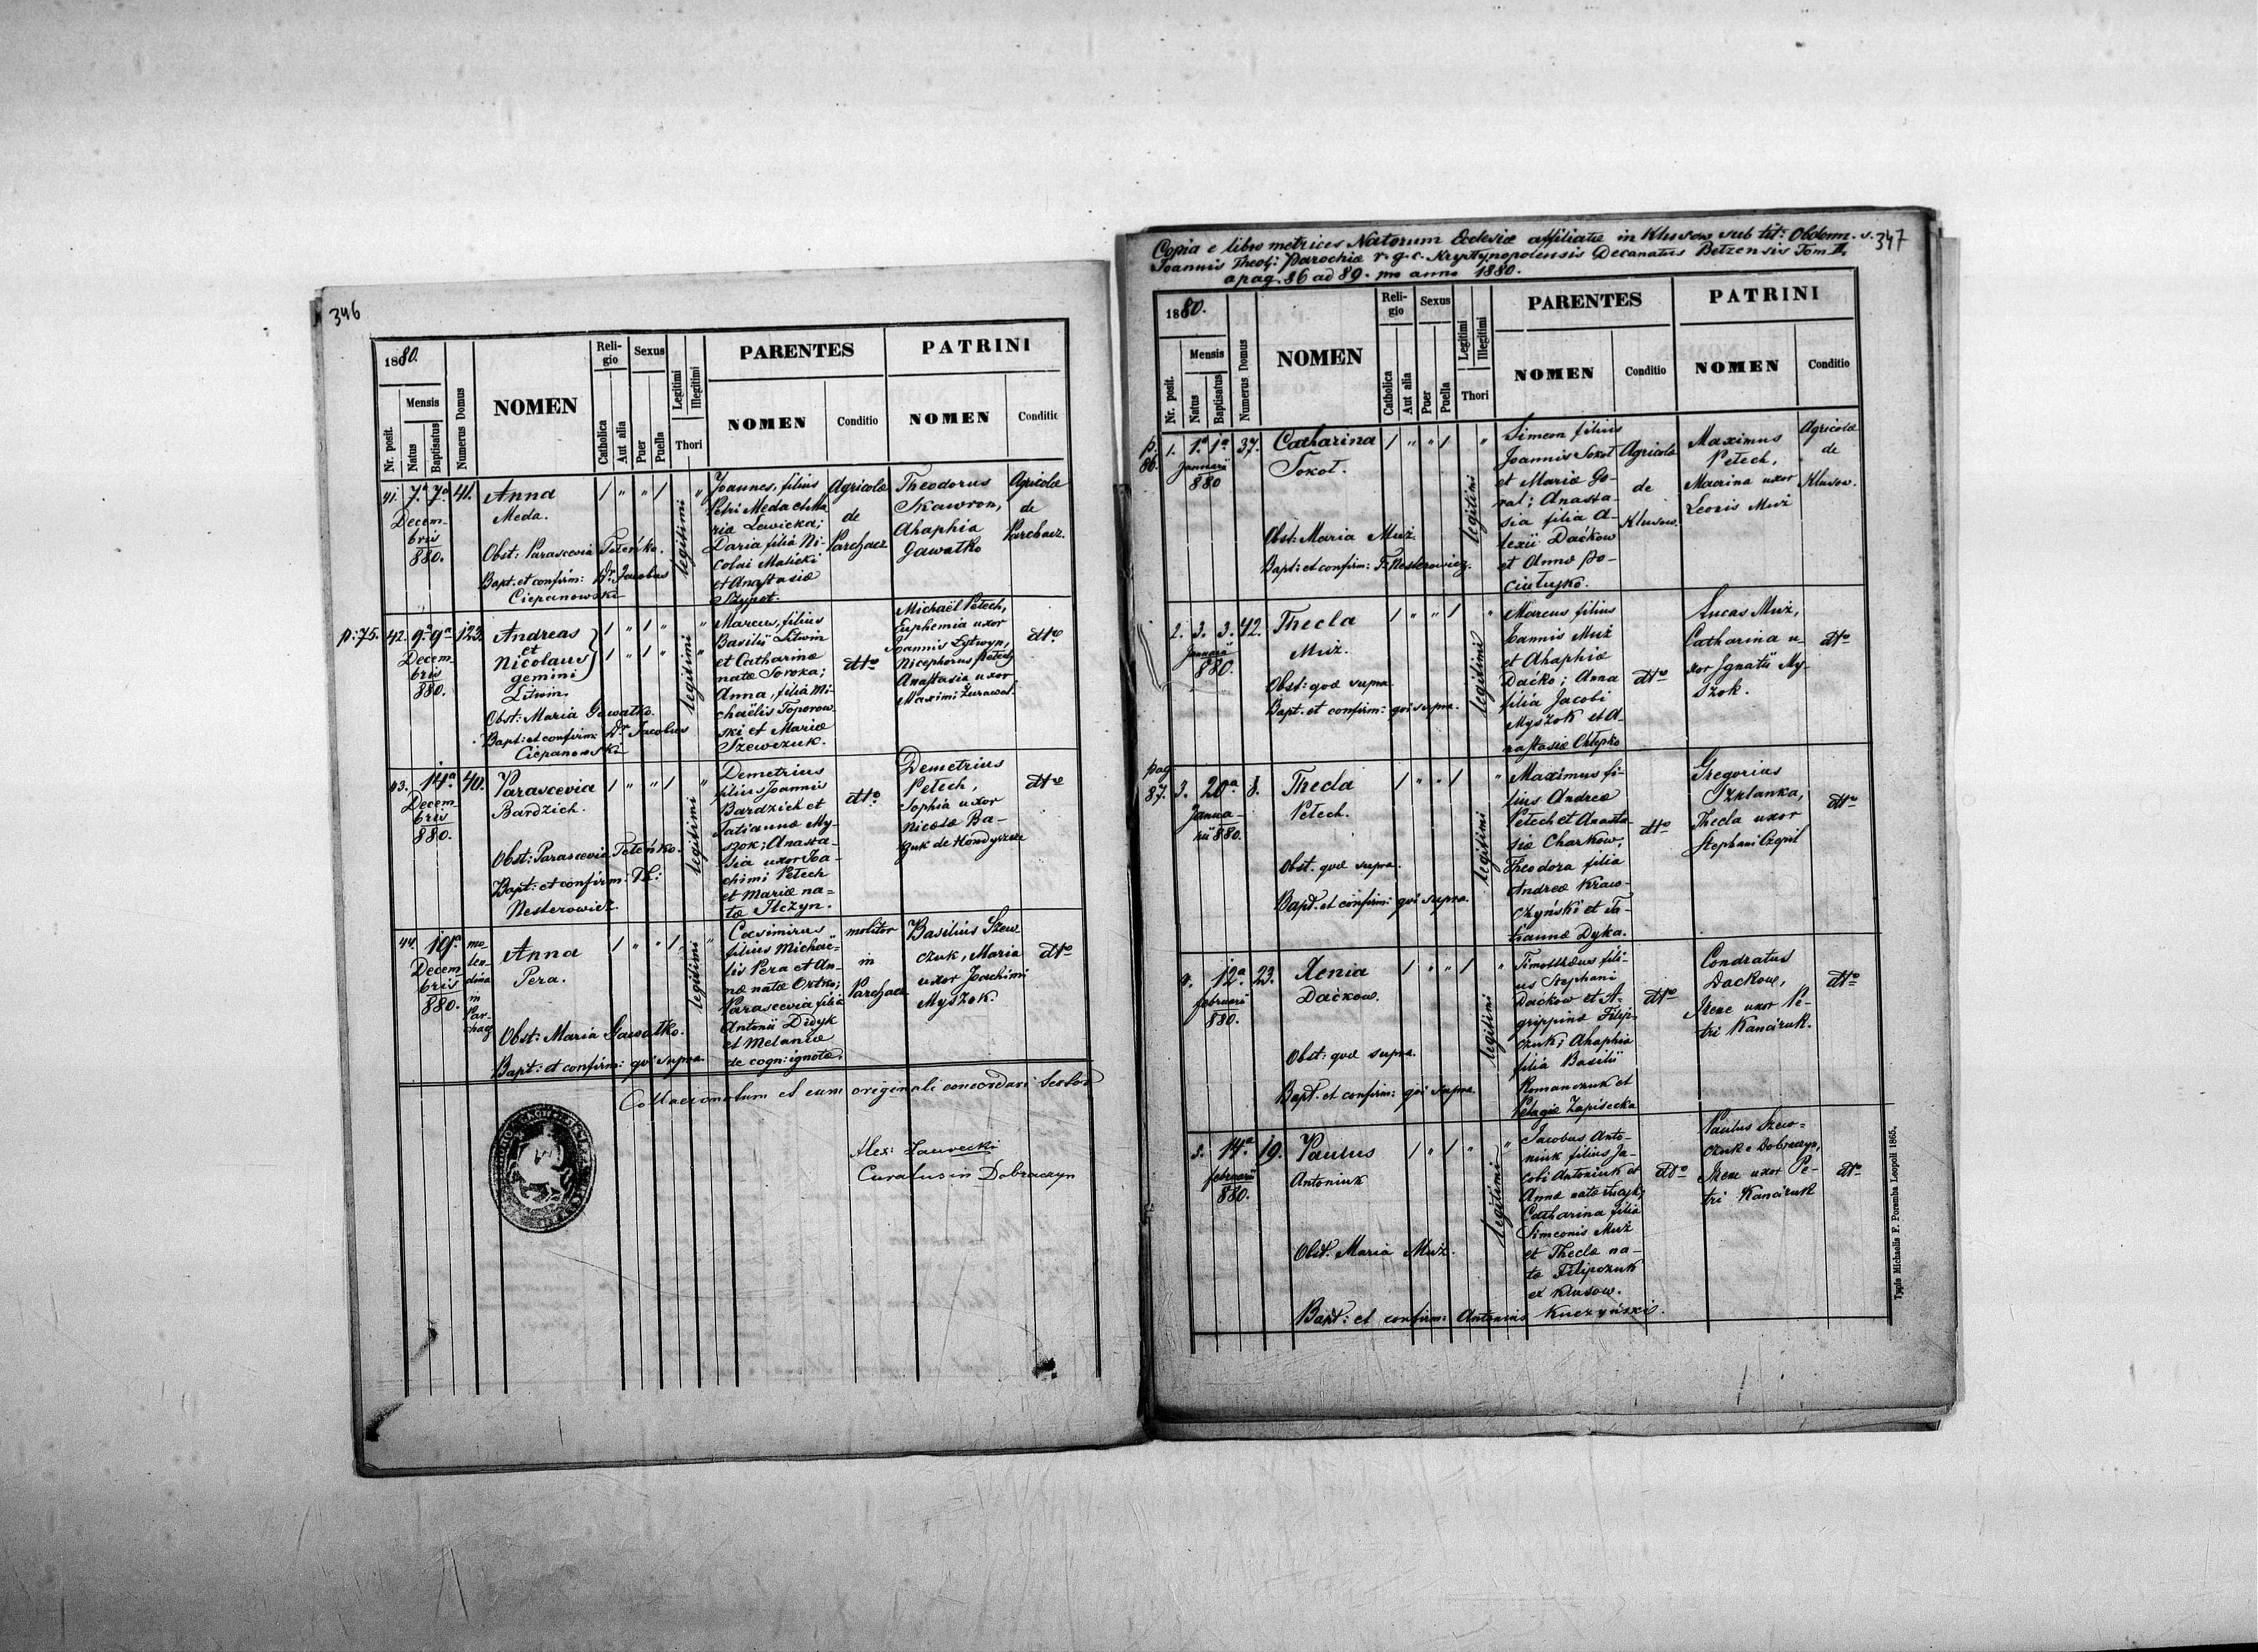 346
1880.
Nr. posit.
Mensis
Natus
Baptisatus
Numerus Domus
NOMEN
Reli-
gio
Catholica
Aut alia
Sexus
Puer
Puella
Legitimi
Illegitimi
Thori
PARENTES
NOMEN
Conditio
PATRINI
NOMEN
Conditio
41. 7.a 7.a 41.
Decem-
bris
880.
Anna
Meda.
Obst: Parascevia Teteńko.
Bapt: et confirm: Dr. Jacobus
Ciepanowski
1 " " 1 "
legitimi
Joannes, filius
Petri Meda et Ma
riæ Lewicka;
Daria filia Ni-
colai Malicki
et Anastasiæ
Szypot.
Agricolæ
de
Parchacz
Theodorus
Skawron,
Ahaphia
Gawałko
Agricolæ
de
Parchacz.
p: 75. 42. 9.a 9.a 123.
Decem-
bris
880.
Andreas
et
Nicolaus
gemini
Litwin.
Obst: Maria Gawałko.
Bapt: et confirm: Dr. Jacobus
Ciepanowski
1 " 1 " "
1 " 1 " "
legitimi
Marcus, filius
Basilii Litwin
et Catharinæ
natæ Soroka;
Anna, filia Mi-
chaëlis Toporow
ski et Mariæ
Szewczuk.
dtto
Michaël Pełech,
Euphemia uxor
Joannis Lytwyn,
Nicephorus Pełech
Anastasia uxor
Maximi Żurawel.
dtto
43. 14.a 40.
Decem
bris
880.
Parascevia
Bardzich.
Obst: Parascevia Teteńko.
Bapt: et confirm: Th:
Nesterowicz.
1 " " 1 "
legitimi
Demetrius
filius Joannis
Bardzich et
Tatiannæ My-
szok; Anasta-
sia uxor Joa-
chimi Pełech
et Mariæ na-
tæ Ilczyn.
dtto
Demetrius
Pełech,
Sophia uxor
Nicolæ Ba-
dtto
44. 19.a
Decem
bris
880.
mo
len-
dina
in
Par-
chacz
Anna
Pera.
Obst: Maria Gawałko.
Bapt: et confirm: qui supra.
1 " " 1 "
legitimi
Casimirus
filius Michaë-
lis Pera et An-
næ natæ Ortko;
Parascevia filia
Antonii Didyk
et Melaniæ
de cogn: ignotæ.
molitor
in
Parchacz
Basilius Szew
czuk, Maria
uxor Joachimi
Myszok.
dtto
Collacionatum et cum originali concordari testor
Alex: Laurecki
Curatus in Dobraczyn
347
Copia e libro metrices Natorum Ecclesiæ affiliatæ in Klusow sub tit: Obdorm. s.
Joannis Theol: Parochiæ r. g. c. Krystynopolensis Decanatus Betzensis Tom II.
a pag. 86 ad 89. pro anno 1880.
1880.
Nr. posit.
Mensis
Natus
Baptisatus
Numerus Domus
NOMEN
Reli-
gio
Catholica
Aut alia
Sexus
Puer
Puella
Legitimi
Illegitimi
Thori
PARENTES
NOMEN
Conditio
PATRINI
NOMEN
Conditio
p.
86. 1. 1.a 1.a 37.
Januarii
880
Catharina
Sokoł.
Obst: Maria Muż.
Bapt: et confirm: T. Nesterowicz.
1 " " 1 "
legitimi
Simeon filius
Joannis Sokoł
et Mariæ Go-
ral; Anasta-
sia filia A-
lexii Daćkow
et Annæ Po-
ciułujko.
Agricolæ
de
Klusow.
Maximus
Pełech,
Marina uxor
Leonis Muż
Agricolæ
de
Klusow.
2. 3. 3. 42.
Januarii
880.
Thecla
Muż.
Obst: quæ supra
Bapt. et confirm: qui supra.
1 " " 1 "
legitimi
Marcus filius
Joannis Muż
et Ahaphiæ
Daćko; Anna
filia Jacobi
Myszok et A-
nastasiæ Chłepko
dtto
Lucas Muż,
Catharina u-
xor Ignatii My-
szok.
dtto
pag
87. 3. 20.a 8.
Janua-
rii 880.
Thecla
Pełech.
Obst. quæ supra.
Bapt. et confirm: qui supra.
1 " " 1 "
legitimi
Maximus fi-
lius Andreæ
Pełech et Anasta-
siæ Charkow;
Theodora filia
Andreæ Kraw-
czyński et Ta-
tiannæ Dyka.
dtto
Gregorius
Szklanka,
Thecla uxor
Stephani Czopil
dtto
4. 12.a 23.
februarii
880.
Xenia
Daćkow.
Obst: quæ supra.
Bapt. et confirm: qui supra.
1 " " 1 "
legitimi
Timotheus fili-
us Stephani
Daćkow et A-
grippinæ Filip-
czuk; Ahaphia
filia Basilii
Romanczuk et
Pelagiæ Zapisocka
dtto
Condratus
Dackow,
Irene uxor Pe-
tri Kanciruk.
dtto
5. 14.a 19.
februarii
880.
Paulus
Antoniuk
Obst. Maria Muż.
Bapt: et confirm: Antonius Kuczyński.
1 " 1 " "
legitimi
Jacobus Anto-
niuk filius Ja-
cobi Antoniuk et
Catharina filia
Simeonis Muż
et Theclæ na-
tæ Filipczuk
ex Klusow.
dtto
Paulus Szew-
czuk e Dobraczyn,
Irene uxor Pe-
tri Kanciruk
dtto
Typis Michaelis F. Poremba Leopoli 1865.